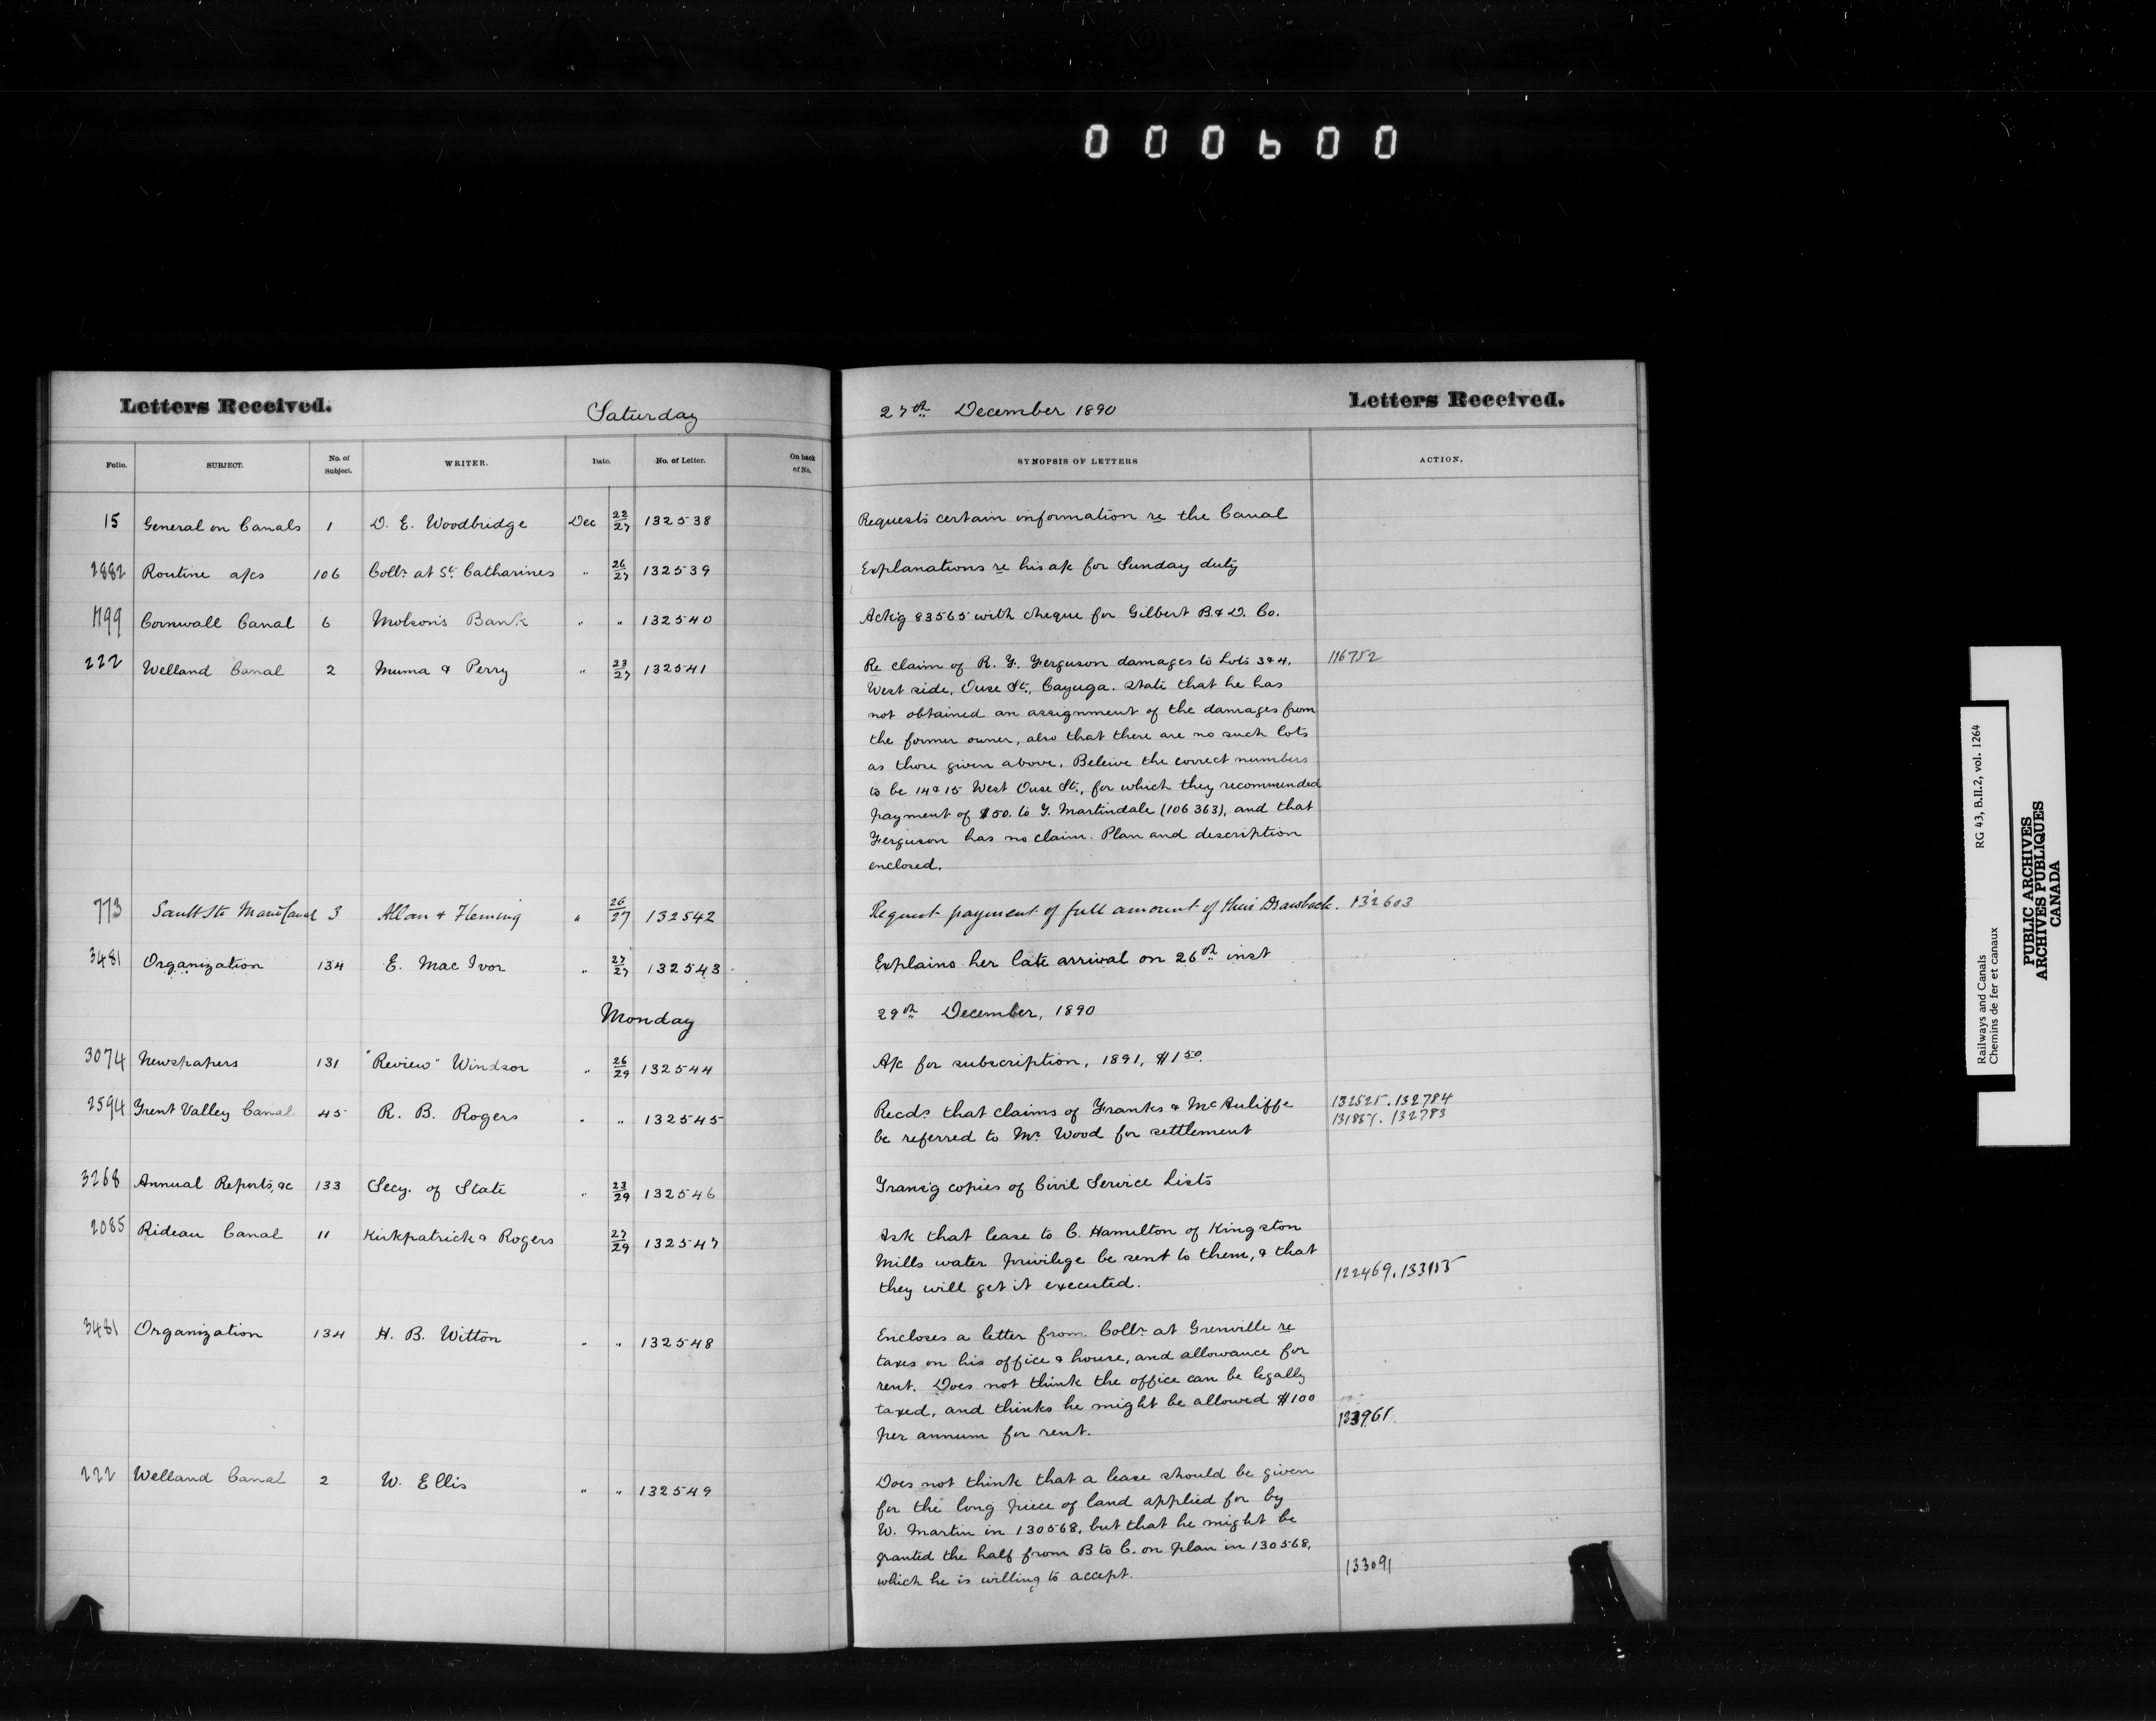 000600
Letters Received. Saturday 27th December 1890 Letters Received.
Folio. SUBJECT. No. of Subject. WRITER. Date. No. of Letter. On back of No. SYNOPSIS OF LETTERS ACTION.
15 General on Canals 1 D. E. Woodbridge Dec 22/27 132538 Requests certain information re the Canal
2882 Routine a/cs 106 Collr. at St. Catharines " 26/27 132539 Explanations re his a/c for Sunday duty
1199 Cornwall Canal 6 Molson's Bank " " 132540 Ack'g 83565 with cheque for Gilbert B. & D. Co.
222 Welland Canal 2 Muma & Perry " 23/27 132541 Re claim of R. F. Ferguson damages to Lots 3 & 4. 116752
West side, Ouse St., Cayuga. State that he has
not obtained an assignment of the damages from
the former owner, also that there are no such lots
as those given above. Beleive the correct numbers
to be 14 & 15 West Ouse St., for which they recommended
payment of $50. to G. Martindale (106363), and that
Ferguson has no claim. Plan and description
enclosed.
773 Sault Ste Marie Canal 3 Allan & Fleming " 26/27 132542 Request payment of full amount of their Drawback. 132603
3481 Organization 134 E. Mac Ivor " 27/27 132543 Explains her late arrival on 26th inst
Monday 29th December, 1890
3074 Newspapers 131 "Review" Windsor " 26/29 132544 A/c for subscription, 1891, $1.50.
2594 Trent Valley Canal 45 R. B. Rogers " " 132545 Recds. that claims of Franks & McAuliffe 132525. 132784
be referred to Mr. Wood for settlement 131857. 132783
3268 Annual Reports, &c 133 Secy. of State " 23/29 132546 Trans'g copies of Civil Service Lists
2085 Rideau Canal 11 Kirkpatrick & Rogers 27/29 132547 Ask that lease to C. Hamilton of Kingston
Mills water privilege be sent to them, & that
they will get it executed. 122469.
3481 Organization 134 H. B. Witton " " 132548 Encloses a letter from Collr. at Grenville re
taxes on his office & house, and allowance for
rent. Does not think the office can be legally
taxed, and thinks he might be allowed $100
per annum for rent. 133961.
222 Welland Canal 2 W. Ellis " " 132549 Does not think that a lease should be given
for the long piece of land applied for by
W. Martin in 130568, but that he might be
granted the half from B to C. on plan in 130568,
which he is willing to accept. 133091
Railways and Canals RG 43, B.II.2, vol. 1264
Chemins de fer et canaux
PUBLIC ARCHIVES
ARCHIVES PUBLIQUES
CANADA